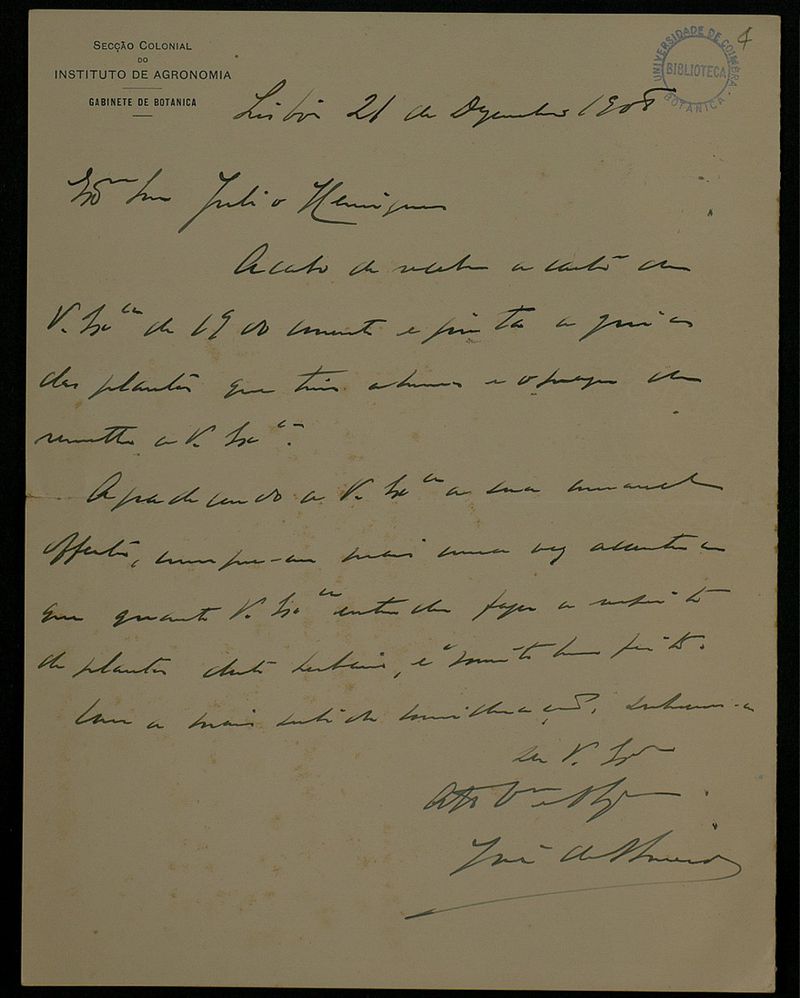 SECÇÃO COLONIAL
DO
INSTITUTO DE AGRONOMIA
GABINETE DE BOTANICA
UNIVERSIDADE DE COIMBRA
BIBLIOTECA
BOTANICA
Lisboa 21 de Dezembro 1908
Exmo Snr Julio Henriques
Acabo de receber a carta de
V. Exca de 19 do corrente e junta a guia
das plantas que tive a honra e o prazer de
remetter a V. Exca.
Agradecendo a V. Exca a sua amavel
offerta, cumpre-me mais uma vez accentuar
que quanto V. Exca entender fazer a respeito
de plantas deste herbario, é muito bem feito.
Com a mais subida consideração, subscrevo-me
de V. Exa
Atto Vor e
José d'Almeida